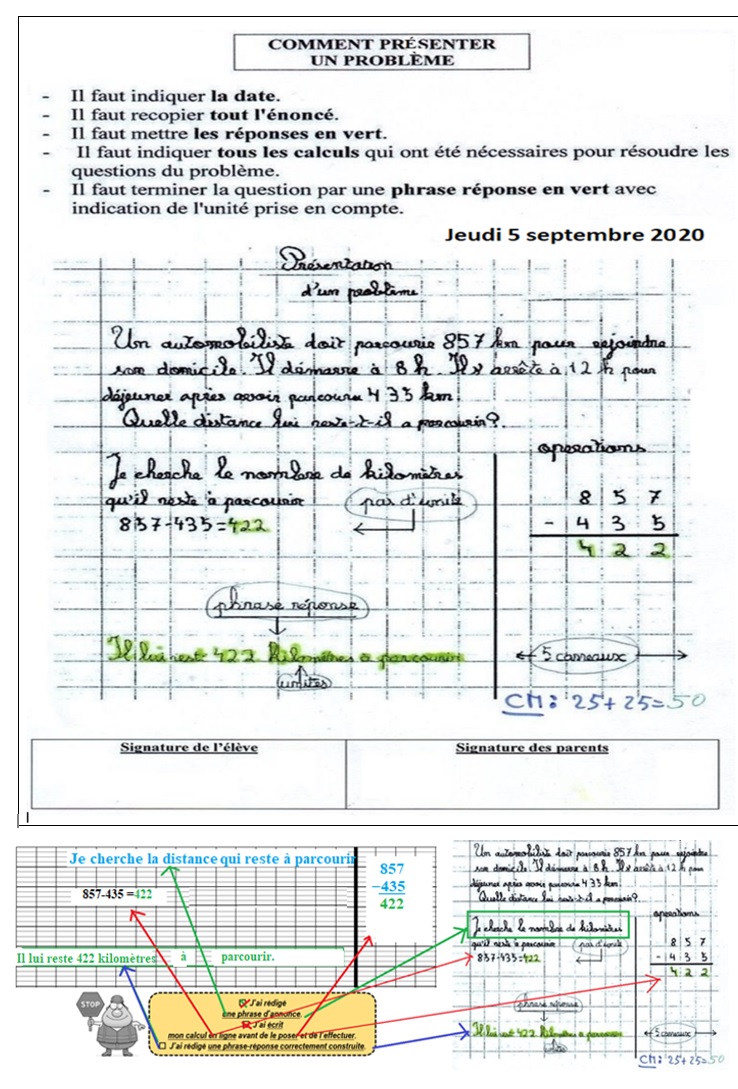 COMMENT PRÉSENTER
UN PROBLÈME
- Il faut indiquer la date.
- Il faut recopier tout l'énoncé.
- Il faut mettre les réponses en vert.
- Il faut indiquer tous les calculs qui ont été nécessaires pour résoudre les
questions du problème.
- Il faut terminer la question par une phrase réponse en vert avec
indication de l'unité prise en compte.
Jeudi 5 septembre 2020
Présentation
d'un problème
Un automobiliste doit parcourir 857 km pour rejoindre
son domicile. Il démarre à 8 h. Il s'arrête à 12 h pour
déjeuner après avoir parcouru 435 km.
Quelle distance lui reste-t-il a parcourir?
operations
Je cherche le nombre de kilomètres
qu'il reste à parcourir
pas d'unité
857-435=422
8 5 7
- 4 3 5
4 2 2
phrase réponse
Il lui rest 422 kilomètres à parcourir
unités
5 carreaux
CM: 25+25=50
Signature de l'élève
Signature des parents
Je cherche la distance qui reste à parcourir
857-435 =422
857
−435
422
Il lui reste 422 kilomètres à parcourir.
STOP
J'ai rédigé
une phrase d'annonce.
J'ai écrit
mon calcul en ligne avant de le poser et de l'effectuer.
J'ai rédigé une phrase-réponse correctement construite.
Un automobiliste doit parcourir 857 km pour rejoindre
son domicile. Il démarre à 8 h. Il s'arrête à 12 h pour
déjeuner après avoir parcouru 435 km.
Quelle distance lui reste-t-il a parcourir?
operations
Je cherche le nombre de kilomètres
qu'il reste à parcourir
pas d'unité
857-435=422
8 5 7
- 4 3 5
4 2 2
phrase réponse
Il lui rest 422 kilomètres à parcourir
unités
5 carreaux
CM: 25+25=50